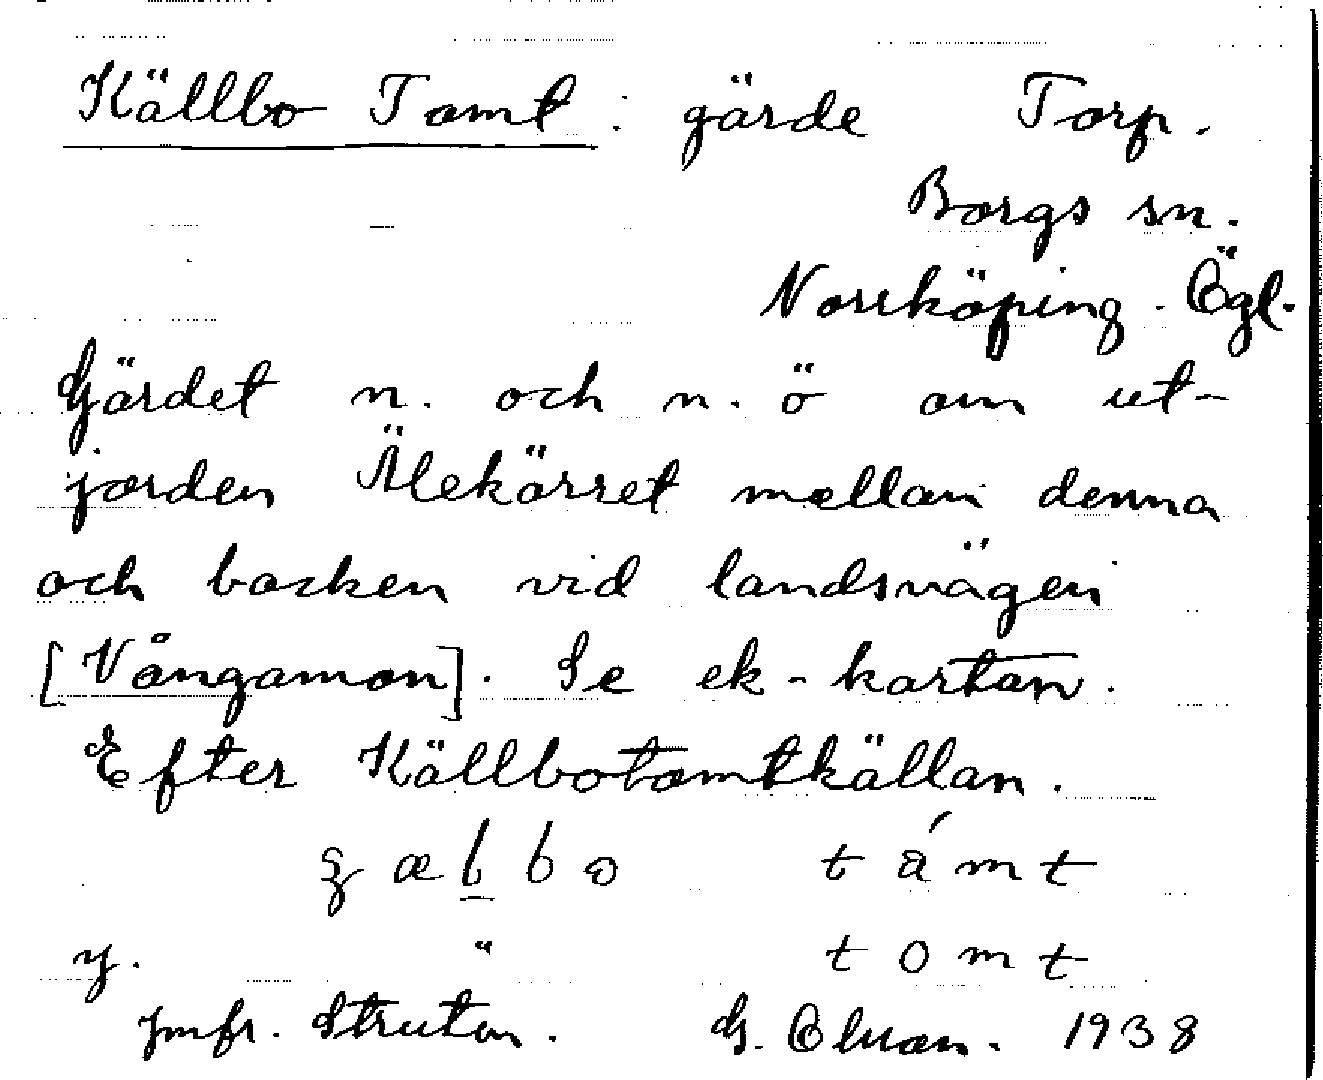 Källbo Tomt : gärde Torp.
Borgs sn.
Norrköping. Ögl.
Gärdet n. och n. ö om ut-
jorden Ålekärret mellan denna
och backen vid landsvägen
[Vångamon]. Se ek-kartan.
Efter Källbotomtkällan.
tomt
y. " tomt
jmfr. Strutan. G. 1938